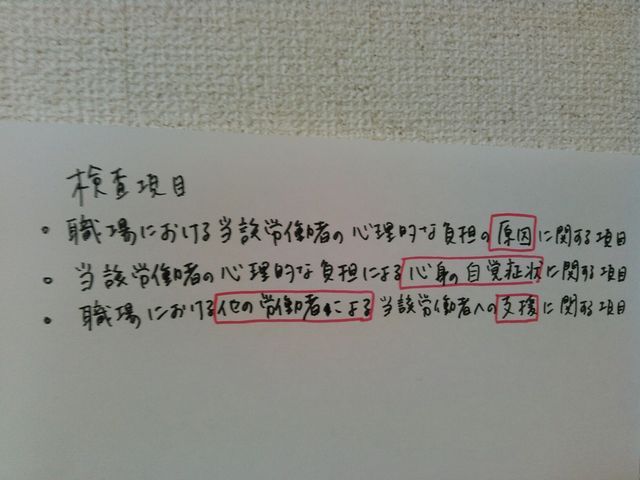 検査項目
• 職場における当該労働者の心理的な負担の原因に関する項目
• 当該労働者の心理的な負担による心身の自覚症状に関する項目
• 職場における他の労働者による当該労働者への支援に関する項目